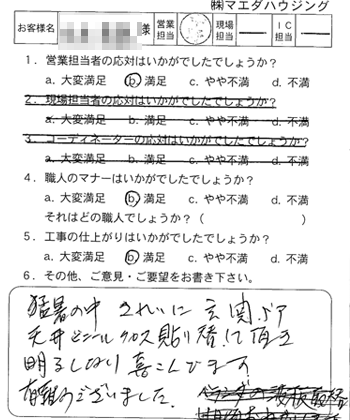 ㈱マエダハウジング
お客様名 様 営業担当 現場担当 IC担当
1．営業担当者の応対はいかがでしたでしょうか？
a. 大変満足 b. 満足 c. やや不満 d. 不満
2．現場担当者の応対はいかがでしたでしょうか？
a. 大変満足 b. 満足 c. やや不満 d. 不満
3．コーディネーターの応対はいかがでしたでしょうか？
a. 大変満足 b. 満足 c. やや不満 d. 不満
4．職人のマナーはいかがでしたでしょうか？
a. 大変満足 b. 満足 c. やや不満 d. 不満
それはどの職人でしょうか？（
5．工事の仕上がりはいかがでしたでしょうか？
a. 大変満足 b. 満足 c. やや不満 d. 不満
6．その他、ご意見・ご要望をお書き下さい。
猛暑の中 きれいに玄関ドア
天井ビニールクロス貼り替えて頂き
明るくなり喜こんでます
有難うございました。